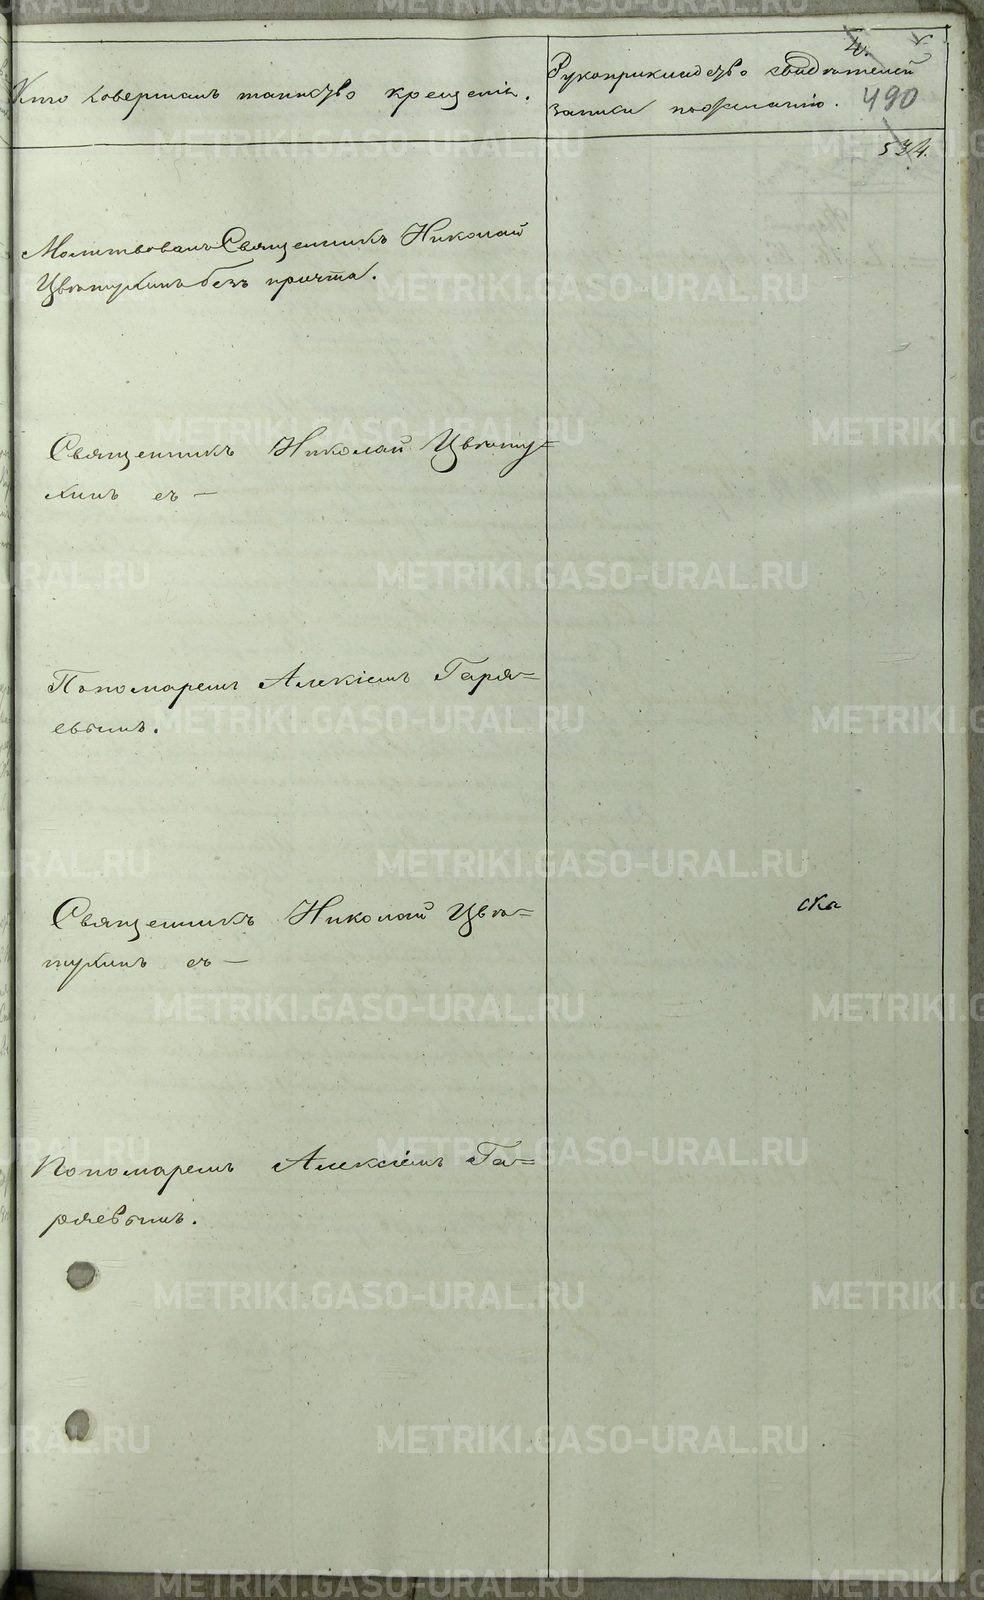 4.
Кто совершалъ таинство крещенія.
Рукоприкладство свидѣтелей
записи по желанію.
490
534.
Молитвовалъ Священникъ Николай
Цвѣтухинъ безъ причта.
Священникъ Николай Цвѣту=
хинъ съ —
Пономаремъ Алексіемъ Гаря=
евымъ.
Священникъ Николай Цвѣ=
тухинъ съ —
ска
Пономаремъ Алексіемъ Га=
ряевымъ.
METRIKI.GASO-URAL.RU